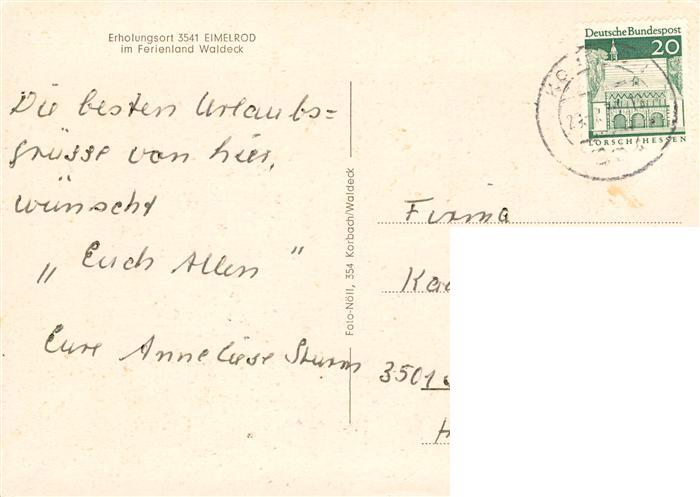 Erholungsort 3541 EIMELROD
im Ferienland Waldeck
Die besten Urlaubs=
grüsse von hier,
wünscht
„ Euch Allen "
Eure Anneliese Sturm
Foto-Nöll, 354 Korbach/Waldeck
Deutsche Bundespost
20
LORSCH/HESSEN
Firma
3501